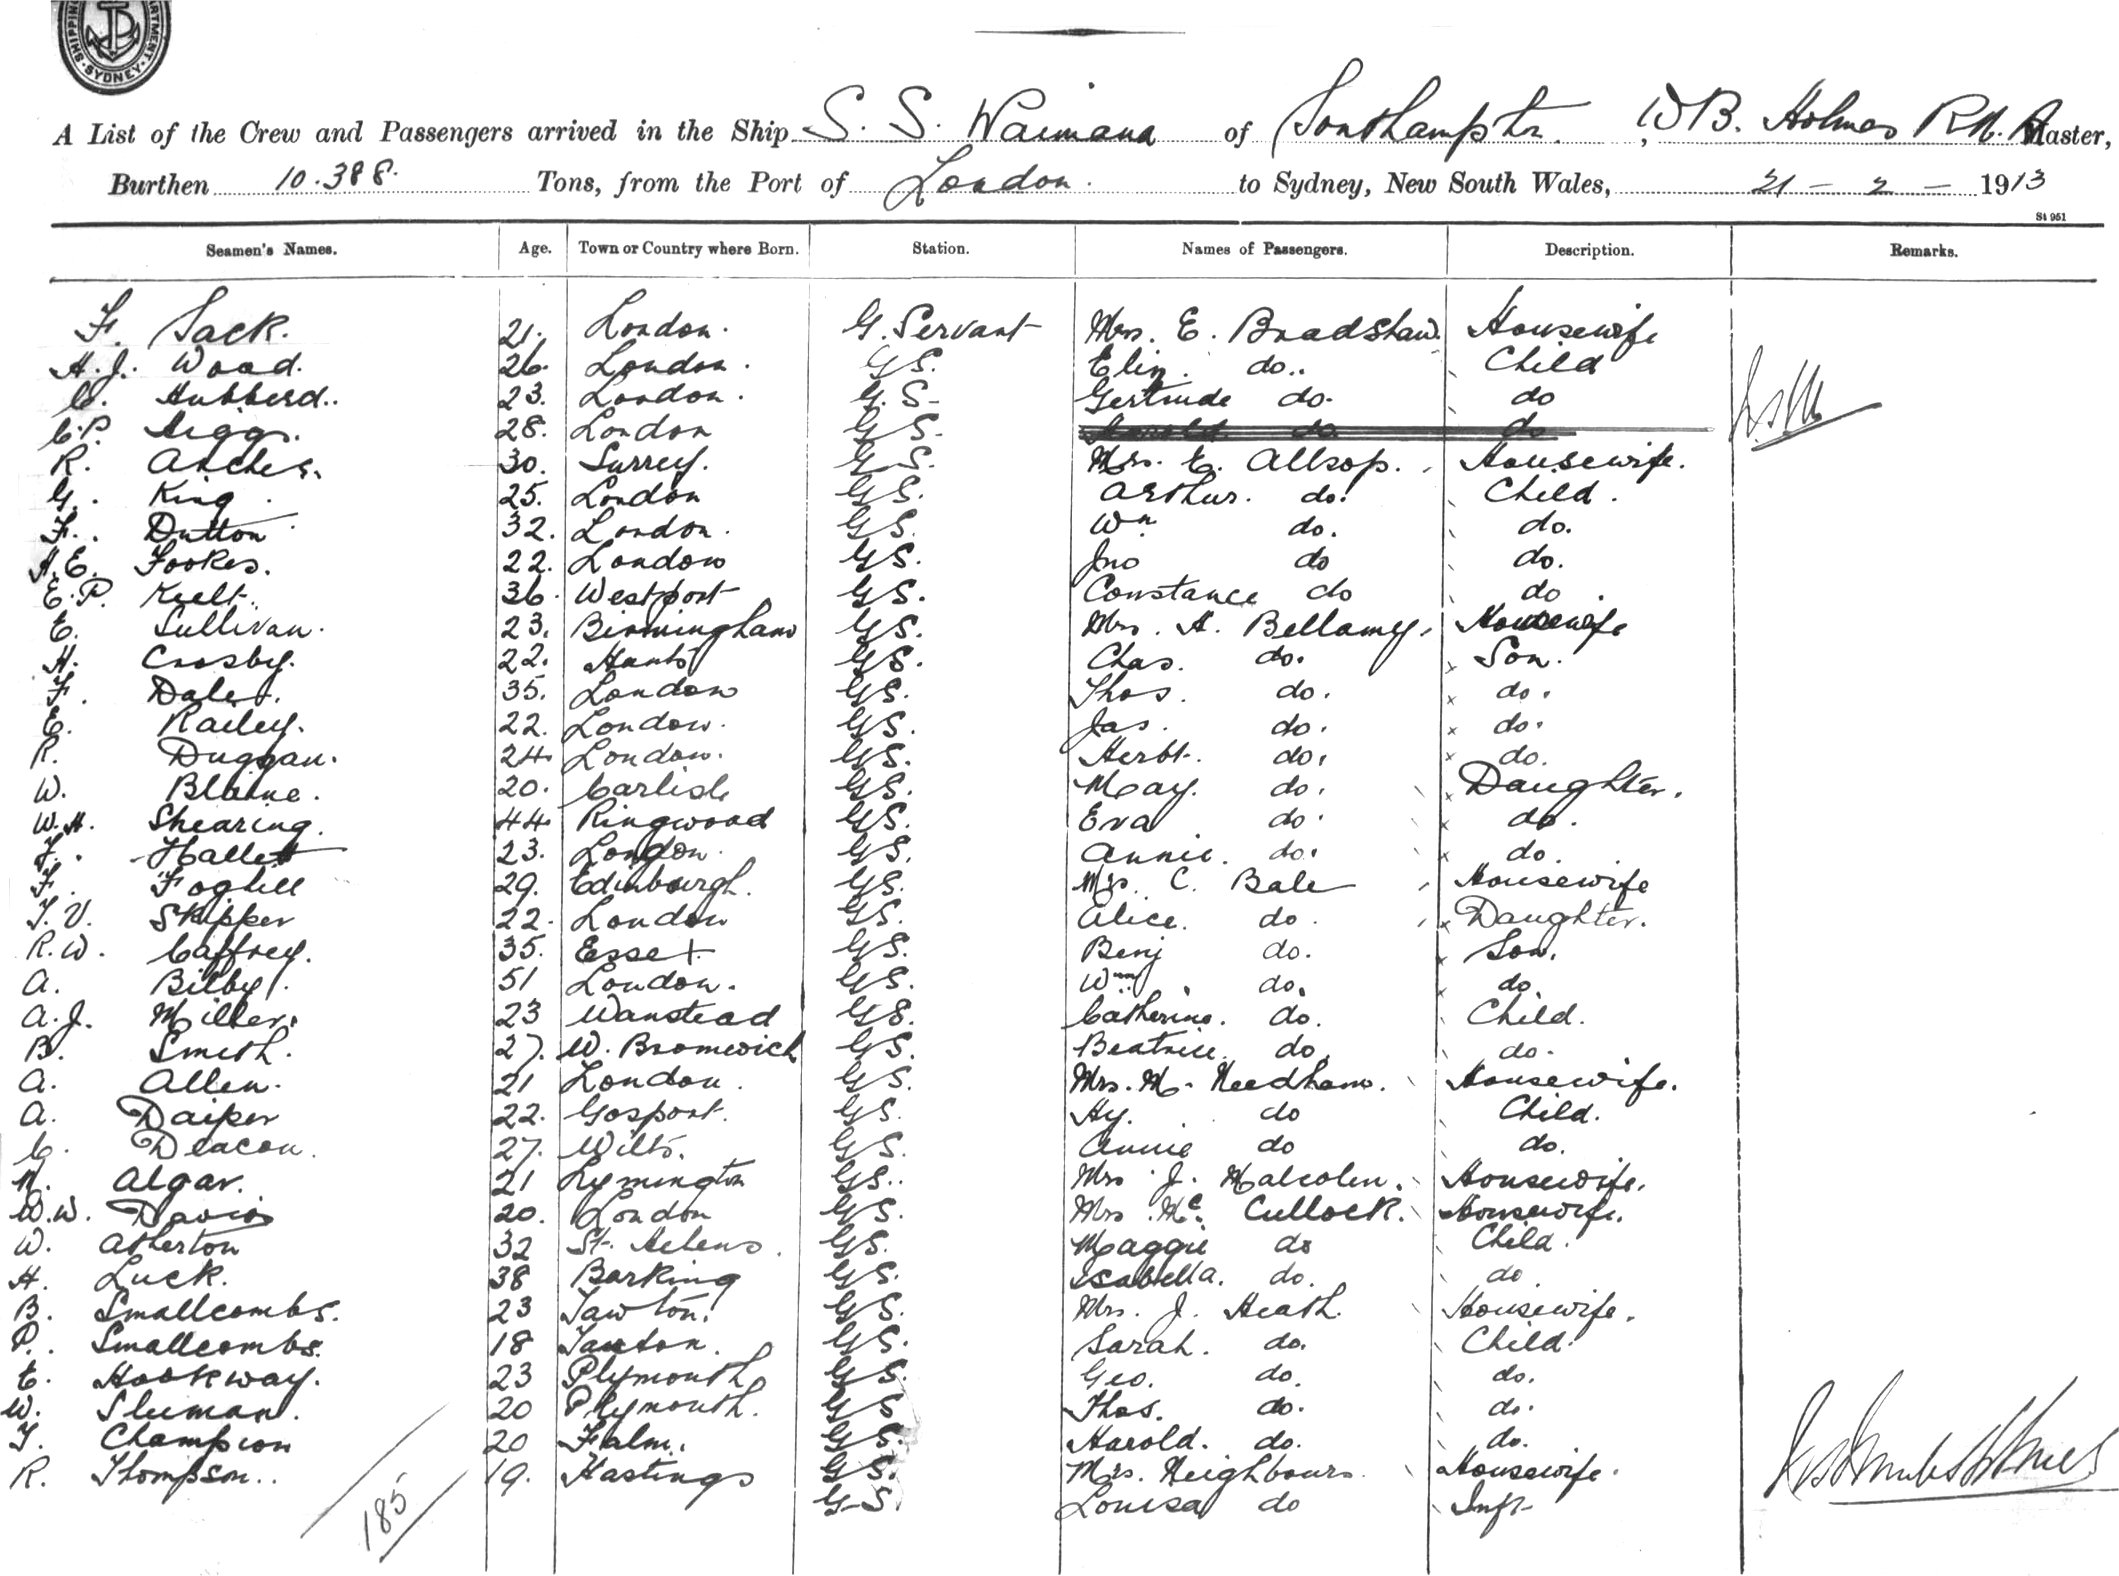 SHIPPING DEPARTMENT SYDNEY
A List of the Crew and Passengers arrived in the Ship S. S. Waimana of Southampton, W B. Holmes R.N.R. Master,
Burthen 10.388. Tons, from the Port of London. to Sydney, New South Wales, 21 - 2 - 1913
St 951
Seamen's Names. Age. Town or Country where Born. Station. Names of Passengers. Description. Remarks.
F. Jack. 21. London. G. Servant Mrs. E. Bradshaw. Housewife
H. J. Wood. 26. London. GS. Eliz. do.. Child
C. Hubberd.. 23. London. G. S- Gertrude do. do
C.P. Higgs. 28. London GS. Harold do do
R. Archer. 30. Surrey. G.S. Mrs. E. Allsop. Housewife.
G. King. 25. London GS. Arthur. do. Child.
F.. Dutton 32. London. GS. Wm do. do.
H.E. Fookes. 22. London GS. Jno do do.
E.P. Kielt. 36. Westport GS. Constance do do.
E. Sullivan. 23. Birmingham GS. Mrs. A. Bellamy. Housewife
H. Crosby. 22. Hants GS. Chas. do. Son.
F. Dalet. 35. London GS. Thos. do. do.
E. Railey. 22. London. GS. Jas. do. do.
R. Duggan. 24. London. GS. Herbt. do. do.
W. Blaine. 20. Carlisle GS. May. do. Daughter.
W.H. Shearing. 44. Ringwood GS. Eva do. do.
F.. Hallett 23. London. GS. Annie. do. do.
F. Foghill 29. Edinburgh. GS. Mrs. C. Bale Housewife
T. V. Skipper 22. London GS. Alice. do. Daughter.
R. W. Caffrey. 35. Essex GS. Benj do. Son.
A. Bilby. 51 London. GS. Wm. do. do
A. J. Miller. 23 Wanstead GS. Catherine. do. Child.
B. Smith. 27. W. Bromwich GS. Beatrice. do. do.
A. Allen. 21 London. GS. Mrs. M. Needham. Housewife.
A. Daiper 22. Gosport. GS. Hy. do Child.
C. Deacon. 27. Wilts. GS. Annie do do.
M. Algar. 21 Lymington GS.. Mrs J. Malcolm. Housewife.
W.W. Davies 20. London GS. Mrs. Mc. Cullock. Housewife.
W. Atherton 32 St. Helens. GS. Maggie do Child.
H. Luck. 38 Barking GS. Isabella. do. do.
B. Smallcombs. 23 Tawton. GS. Mrs. J. Heath. Housewife.
P.. Smallcombs. 18 Tawton. GS. Sarah. do. Child.
E. Hookway. 23 Plymouth GS. Geo. do. do.
W. Sluman. 20 Plymouth. GS Thos. do. do.
T. Champion 20 Falm. GS. Harold. do. do.
R. Thompson.. 19. Hastings GS. Mrs. Neighbours. Housewife.
G-S. Louisa do Inft-
185